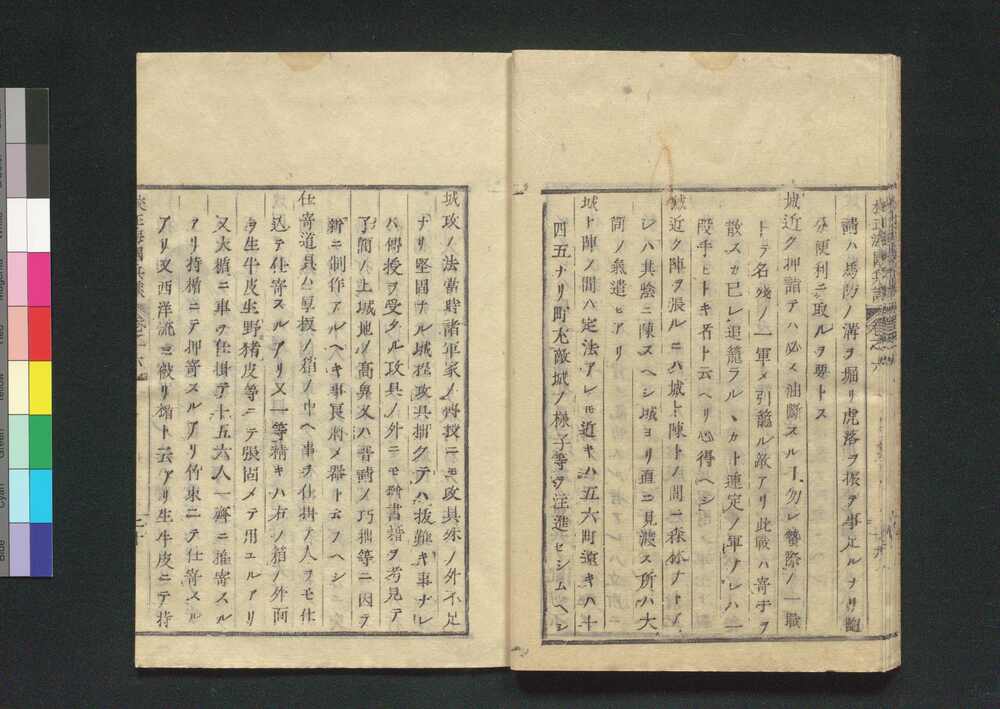 請ハ馬防ノ溝ヲ堀リ虎落ヲ振ヲ事足ルナリ
分便利ニ取ルヲ要トス
城近ク押詰テハ必ス油斷スルヿ勿レ蟄際ノ一戰
トテ名殘ノ一軍メ引籠ル敵アリ此戰ハ寄手ヲ
散スカ已レ追籠ラルヽカト運定ノ軍ナレハ一
段手ヒトキ者ト云ヘリ心得ヘシ
城近ク陣ヲ張ルニハ城ト陳トノ間ニ森林ナト
シハ其陰ニ陳スヘシ城ヨリ直ニ見渡ス所ハ大
筒ノ氣遣ヒアリ
城ト陣ノ間ハ定法アレ𪜈近キハ五六町遠キハ十
四五ナリ町尤敵城ノ様子等ヲ注進セシムヘシ
城攻ノ法當時諸軍家ノ傳授ニモ攻具殊ノ外不足
ナリ堅固ナル城抔攻具拙クテハ抜難キ事ナレ
ハ傳授ヲ受タル攻具ノ外ニモ群書籍ヲ考見テ
了簡ノ上城地ノ高卑又ハ普請ノ巧拙等ニ因テ
新ニ制作アルヘキ事良將ノ器ト云フヘシ
仕寄道具ハ厚板ノ箱ノ中ヘ車ヲ仕掛テ人ヲモ仕
込テ仕寄スルアリ又一等精キハ右ノ箱ノ外面
ヲ生牛皮生野猪皮等ニテ張固メテ用ユルアリ
又大楯ニ車ヲ仕掛テ十五六人一齊ニ推寄スル
アリ持楯ニテ押寄スルアリ竹束ニテ仕寄スル
アリ又西洋流ニ被リ楯ト云アリ生牛皮ニテ持